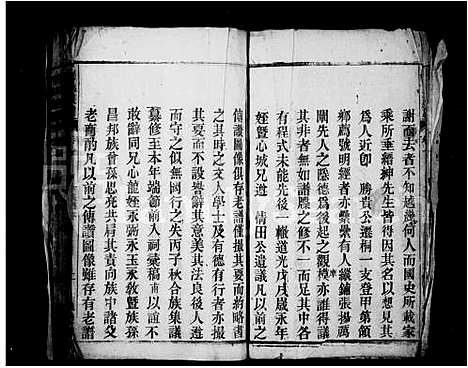 謝而去者不知越幾何人而國史所載家
乘所垂縉紳先生皆得因其名以想見其
為人近卽勝貴公遷桐一支登甲第領
鄉薦號明經者亦纍纍有人縱鋪張揚萬
闡先人之隱德爲後起之觀樟亦誰得
其非者無如譜牒之修不一而足其中各
有程式未能先後一轍道光戊戌歲永年
姪曁心城兄逰倩田公遺議凡以前之
傳讚圖像俱存老譜僅撮其要而約略書
之其時之文人學士及有德有行者亦撮
其要而不設譽辭其意美其法良後人遵
而守之似無罔行之失丙子秋合族集議
纂修至本年端節前入祠彙稿
敢辭同兄心龍姪永弼永玉永敘曁族孫
昌邦族曾孫思堯共肩其責向族中諸
老商酌凡以前之傳讚圖像雖存有老譜